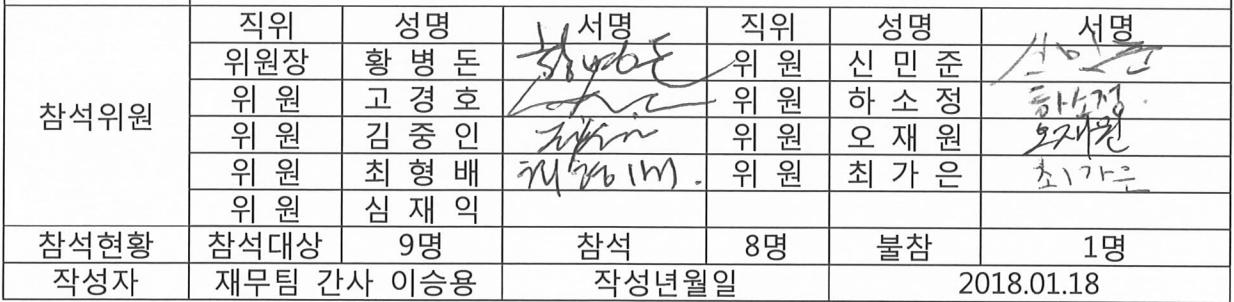 직위 성명 서명 직위 성명 서명
위원장 황병돈 황병돈 위원 신민준 신민준
참석위원 위원 고경호 위원 하소정 하소정
위원 김중인 위원 오재원 오재원
위원 최형배 최형배 위원 최가은 최가은
위원 심재익
참석현황 참석대상 9명 참석 8명 불참 1명
작성자 재무팀 간사 이승용 작성년월일 2018.01.18